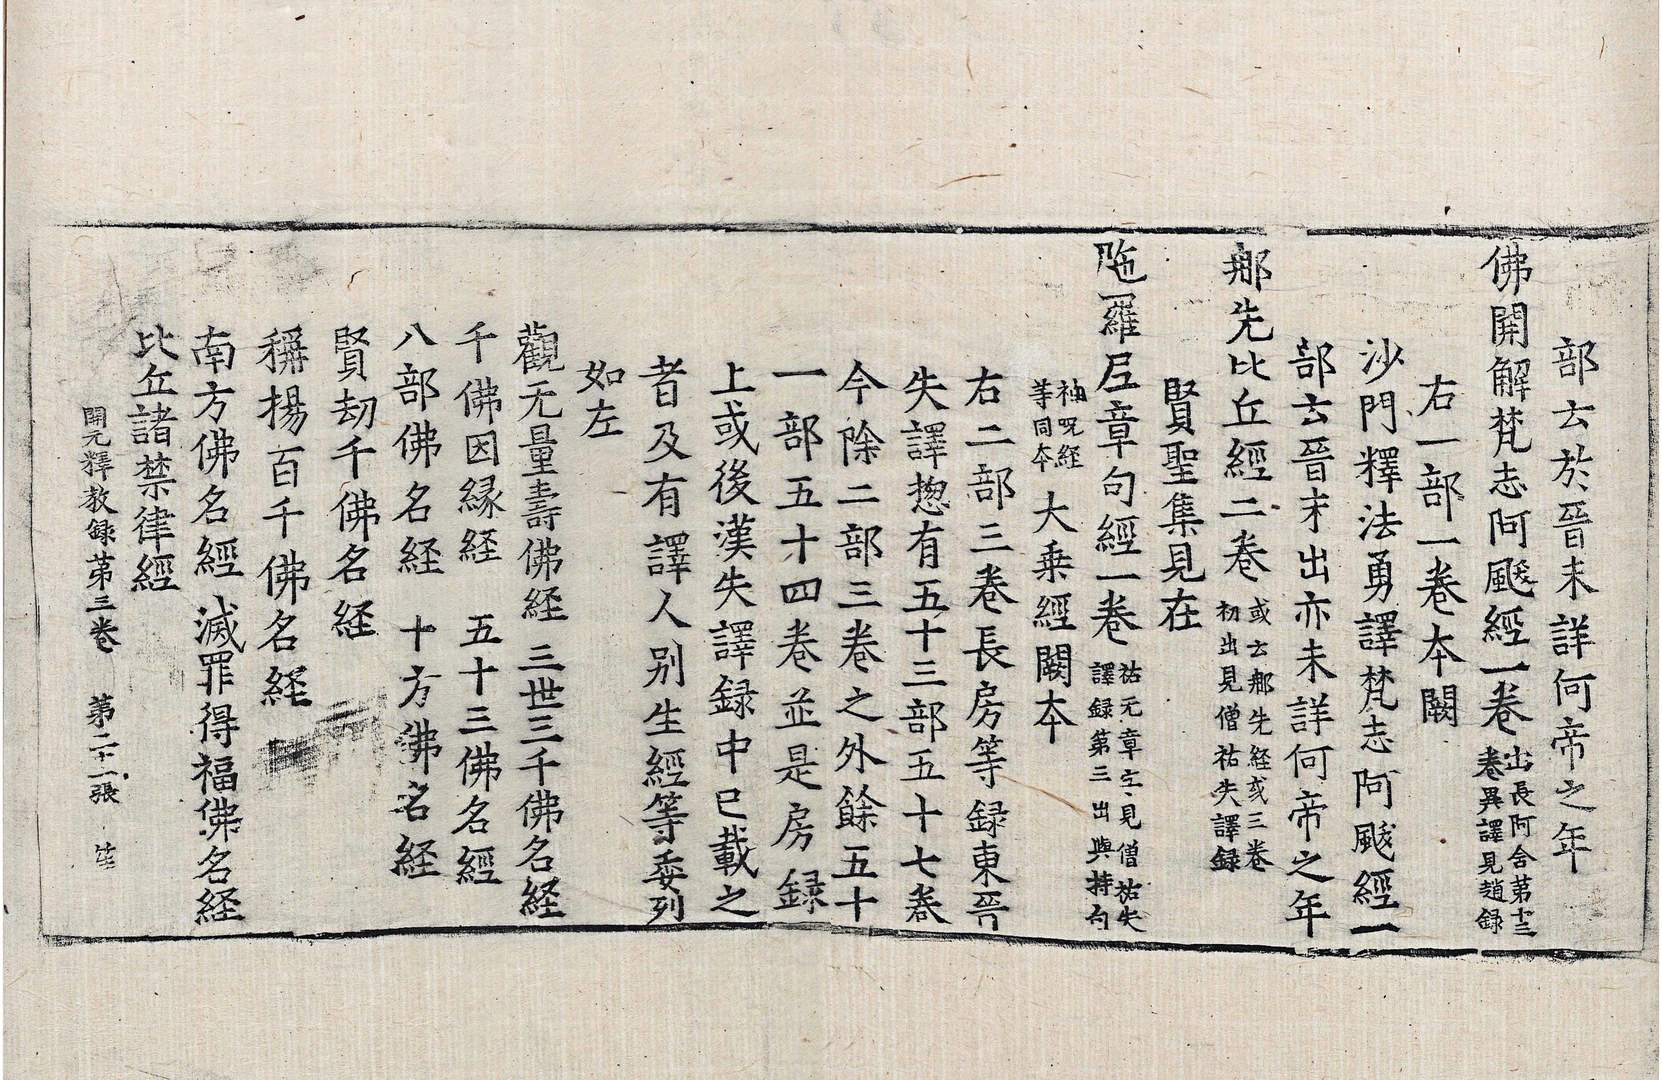 部云於晉末詳何帝之年
佛開解梵志阿颰經一卷 出長阿含第十三卷異譯見趙錄
右一部一卷本闕
沙門釋法勇譯梵志阿颰經一
部云晉末出亦未詳何帝之年
那先比丘經二卷 或云那先經或三卷初出見僧祐失譯錄
賢聖集見在
陁羅尼章句經一卷 祐无章字見僧祐失譯錄第三出與持句
神呪經等同本 大乘經闕本
右二部三卷長房等録東晉
失譯惣有五十三部五十七卷
今除二部三卷之外餘五十
一部五十四卷並是房録
上或後漢失譯録中已載之
者及有譯人别生經等委列
如左
觀无量壽佛経 三世三千佛名経
千佛因緣経 五十三佛名經
八部佛名経 十方佛名経
賢劫千佛名経
稱揚百千佛名経
南方佛名經 滅罪得福佛名経
比丘諸禁律經
開元釋教録苐三卷 苐二十一張